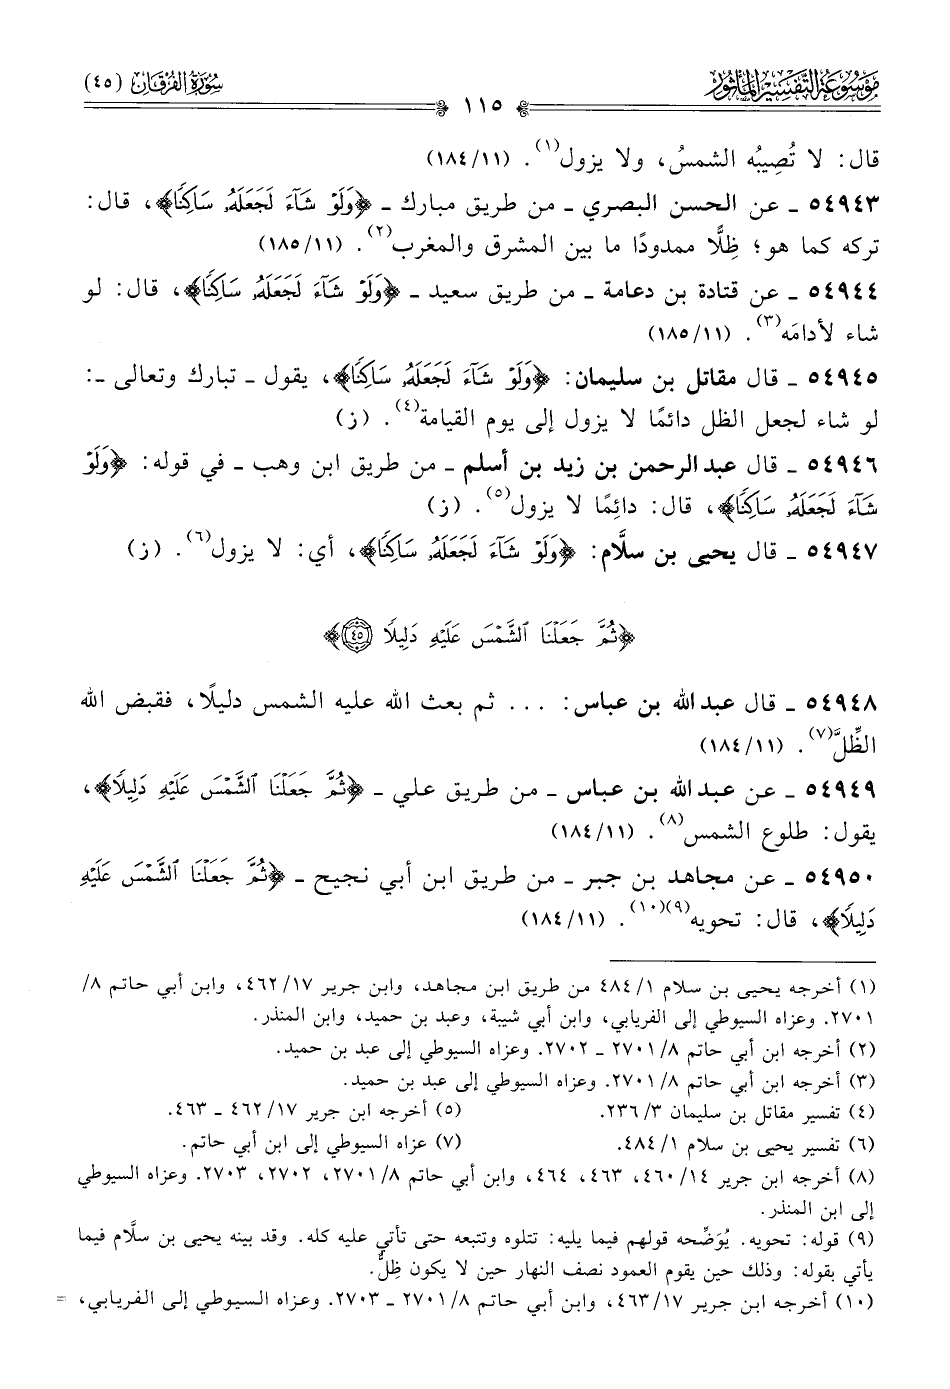 موسوعة التفسير المأثور
سورة الفرقان (٤٥)
١١٥
قال: لا تُصِيبُه الشمسُ، ولا يزول(١). (١١/ ١٨٤)
٥٤٩٤٣ ـ عن الحسن البصري ـ من طريق مبارك ـ ﴿وَلَوْ شَآءَ لَجَعَلَهُۥ سَاكِنًا﴾، قال:
تركه كما هو؛ ظِلًّا ممدودًا ما بين المشرق والمغرب(٢). (١١/ ١٨٥)
٥٤٩٤٤ ـ عن قتادة بن دعامة ـ من طريق سعيد ـ ﴿وَلَوْ شَآءَ لَجَعَلَهُۥ سَاكِنًا﴾، قال: لو
شاء لأدامَه(٣). (١١/ ١٨٥)
٥٤٩٤٥ ـ قال مقاتل بن سليمان: ﴿وَلَوْ شَآءَ لَجَعَلَهُۥ سَاكِنًا﴾، يقول ـ تبارك وتعالى ـ:
لو شاء لجعل الظل دائمًا لا يزول إلى يوم القيامة(٤). (ز)
٥٤٩٤٦ ـ قال عبد الرحمن بن زيد بن أسلم ـ من طريق ابن وهب ـ في قوله: ﴿وَلَوْ
شَآءَ لَجَعَلَهُۥ سَاكِنًا﴾، قال: دائِمًا لا يزول(٥). (ز)
٥٤٩٤٧ ـ قال يحيى بن سلَّام: ﴿وَلَوْ شَآءَ لَجَعَلَهُۥ سَاكِنًا﴾، أي: لا يزول(٦). (ز)
﴿ثُمَّ جَعَلْنَا ٱلشَّمْسَ عَلَيْهِ دَلِيلًا ٤٥﴾
٥٤٩٤٨ ـ قال عبد الله بن عباس: ... ثم بعث الله عليه الشمس دليلًا، فقبض الله
الظِّلَّ(٧). (١١/ ١٨٤)
٥٤٩٤٩ ـ عن عبد الله بن عباس ـ من طريق علي ـ ﴿ثُمَّ جَعَلْنَا ٱلشَّمْسَ عَلَيْهِ دَلِيلًا﴾،
يقول: طلوع الشمس(٨). (١١/ ١٨٤)
٥٤٩٥٠ ـ عن مجاهد بن جبر ـ من طريق ابن أبي نجيح ـ ﴿ثُمَّ جَعَلْنَا ٱلشَّمْسَ عَلَيْهِ
دَلِيلًا﴾، قال: تحويه(٩)(١٠). (١١/ ١٨٤)
(١) أخرجه يحيى بن سلام ١/ ٤٨٤ من طريق ابن مجاهد، وابن جرير ١٧/ ٤٦٢، وابن أبي حاتم ٨/
٢٧٠١. وعزاه السيوطي إلى الفريابي، وابن أبي شيبة، وعبد بن حميد، وابن المنذر.
(٢) أخرجه ابن أبي حاتم ٨/ ٢٧٠١ ـ ٢٧٠٢. وعزاه السيوطي إلى عبد بن حميد.
(٣) أخرجه ابن أبي حاتم ٨/ ٢٧٠١. وعزاه السيوطي إلى عبد بن حميد.
(٤) تفسير مقاتل بن سليمان ٣/ ٢٣٦. (٥) أخرجه ابن جرير ١٧/ ٤٦٢ ـ ٤٦٣.
(٦) تفسير يحيى بن سلام ١/ ٤٨٤. (٧) عزاه السيوطي إلى ابن أبي حاتم.
(٨) أخرجه ابن جرير ١٤/ ٤٦٠، ٤٦٣، ٤٦٤، وابن أبي حاتم ٨/ ٢٧٠١، ٢٧٠٢، ٢٧٠٣. وعزاه السيوطي
إلى ابن المنذر.
(٩) قوله: تحويه. يُوَضِّحه قولهم فيما يليه: تتلوه وتتبعه حتى تأتي عليه كله. وقد بينه يحيى بن سلَّام فيما
يأتي بقوله: وذلك حين يقوم العمود نصف النهار حين لا يكون ظِلٌّ.
(١٠) أخرجه ابن جرير ١٧/ ٤٦٣، وابن أبي حاتم ٨/ ٢٧٠١ ـ ٢٧٠٣. وعزاه السيوطي إلى الفريابي، =